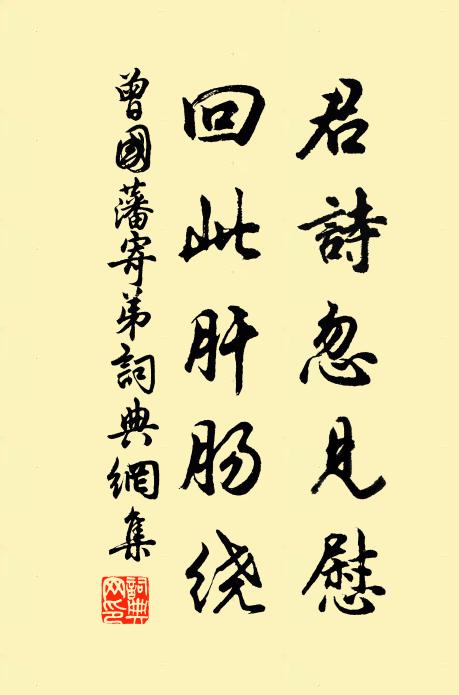 君詩忽見慰
回此肝肠绕
曾國藩寄弟詞典網集
詞典网印